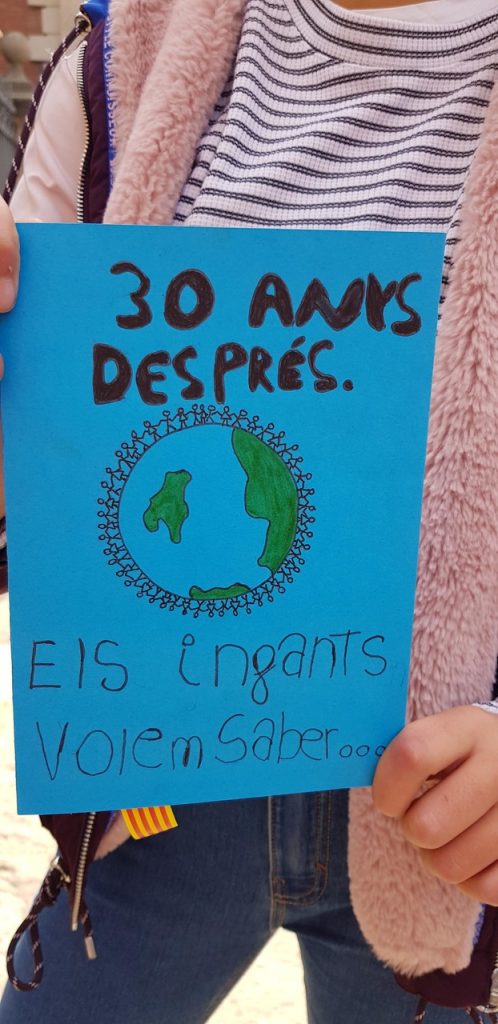 30 ANYS
DESPRÉS.
Els ingants
volem saber...